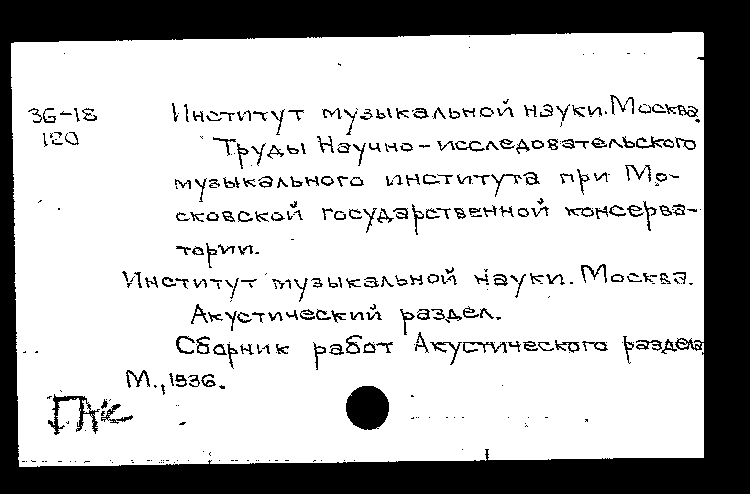 36-18 Институт музыкальной науки. Москва.
120 Труды Научно-исследовательского
музыкального института при Мо-
сковской государственной консерва-
тории.
Институт музыкальной науки. Москва.
Акустический раздел.
Сборник работ Акустического раздела
М., 1936.